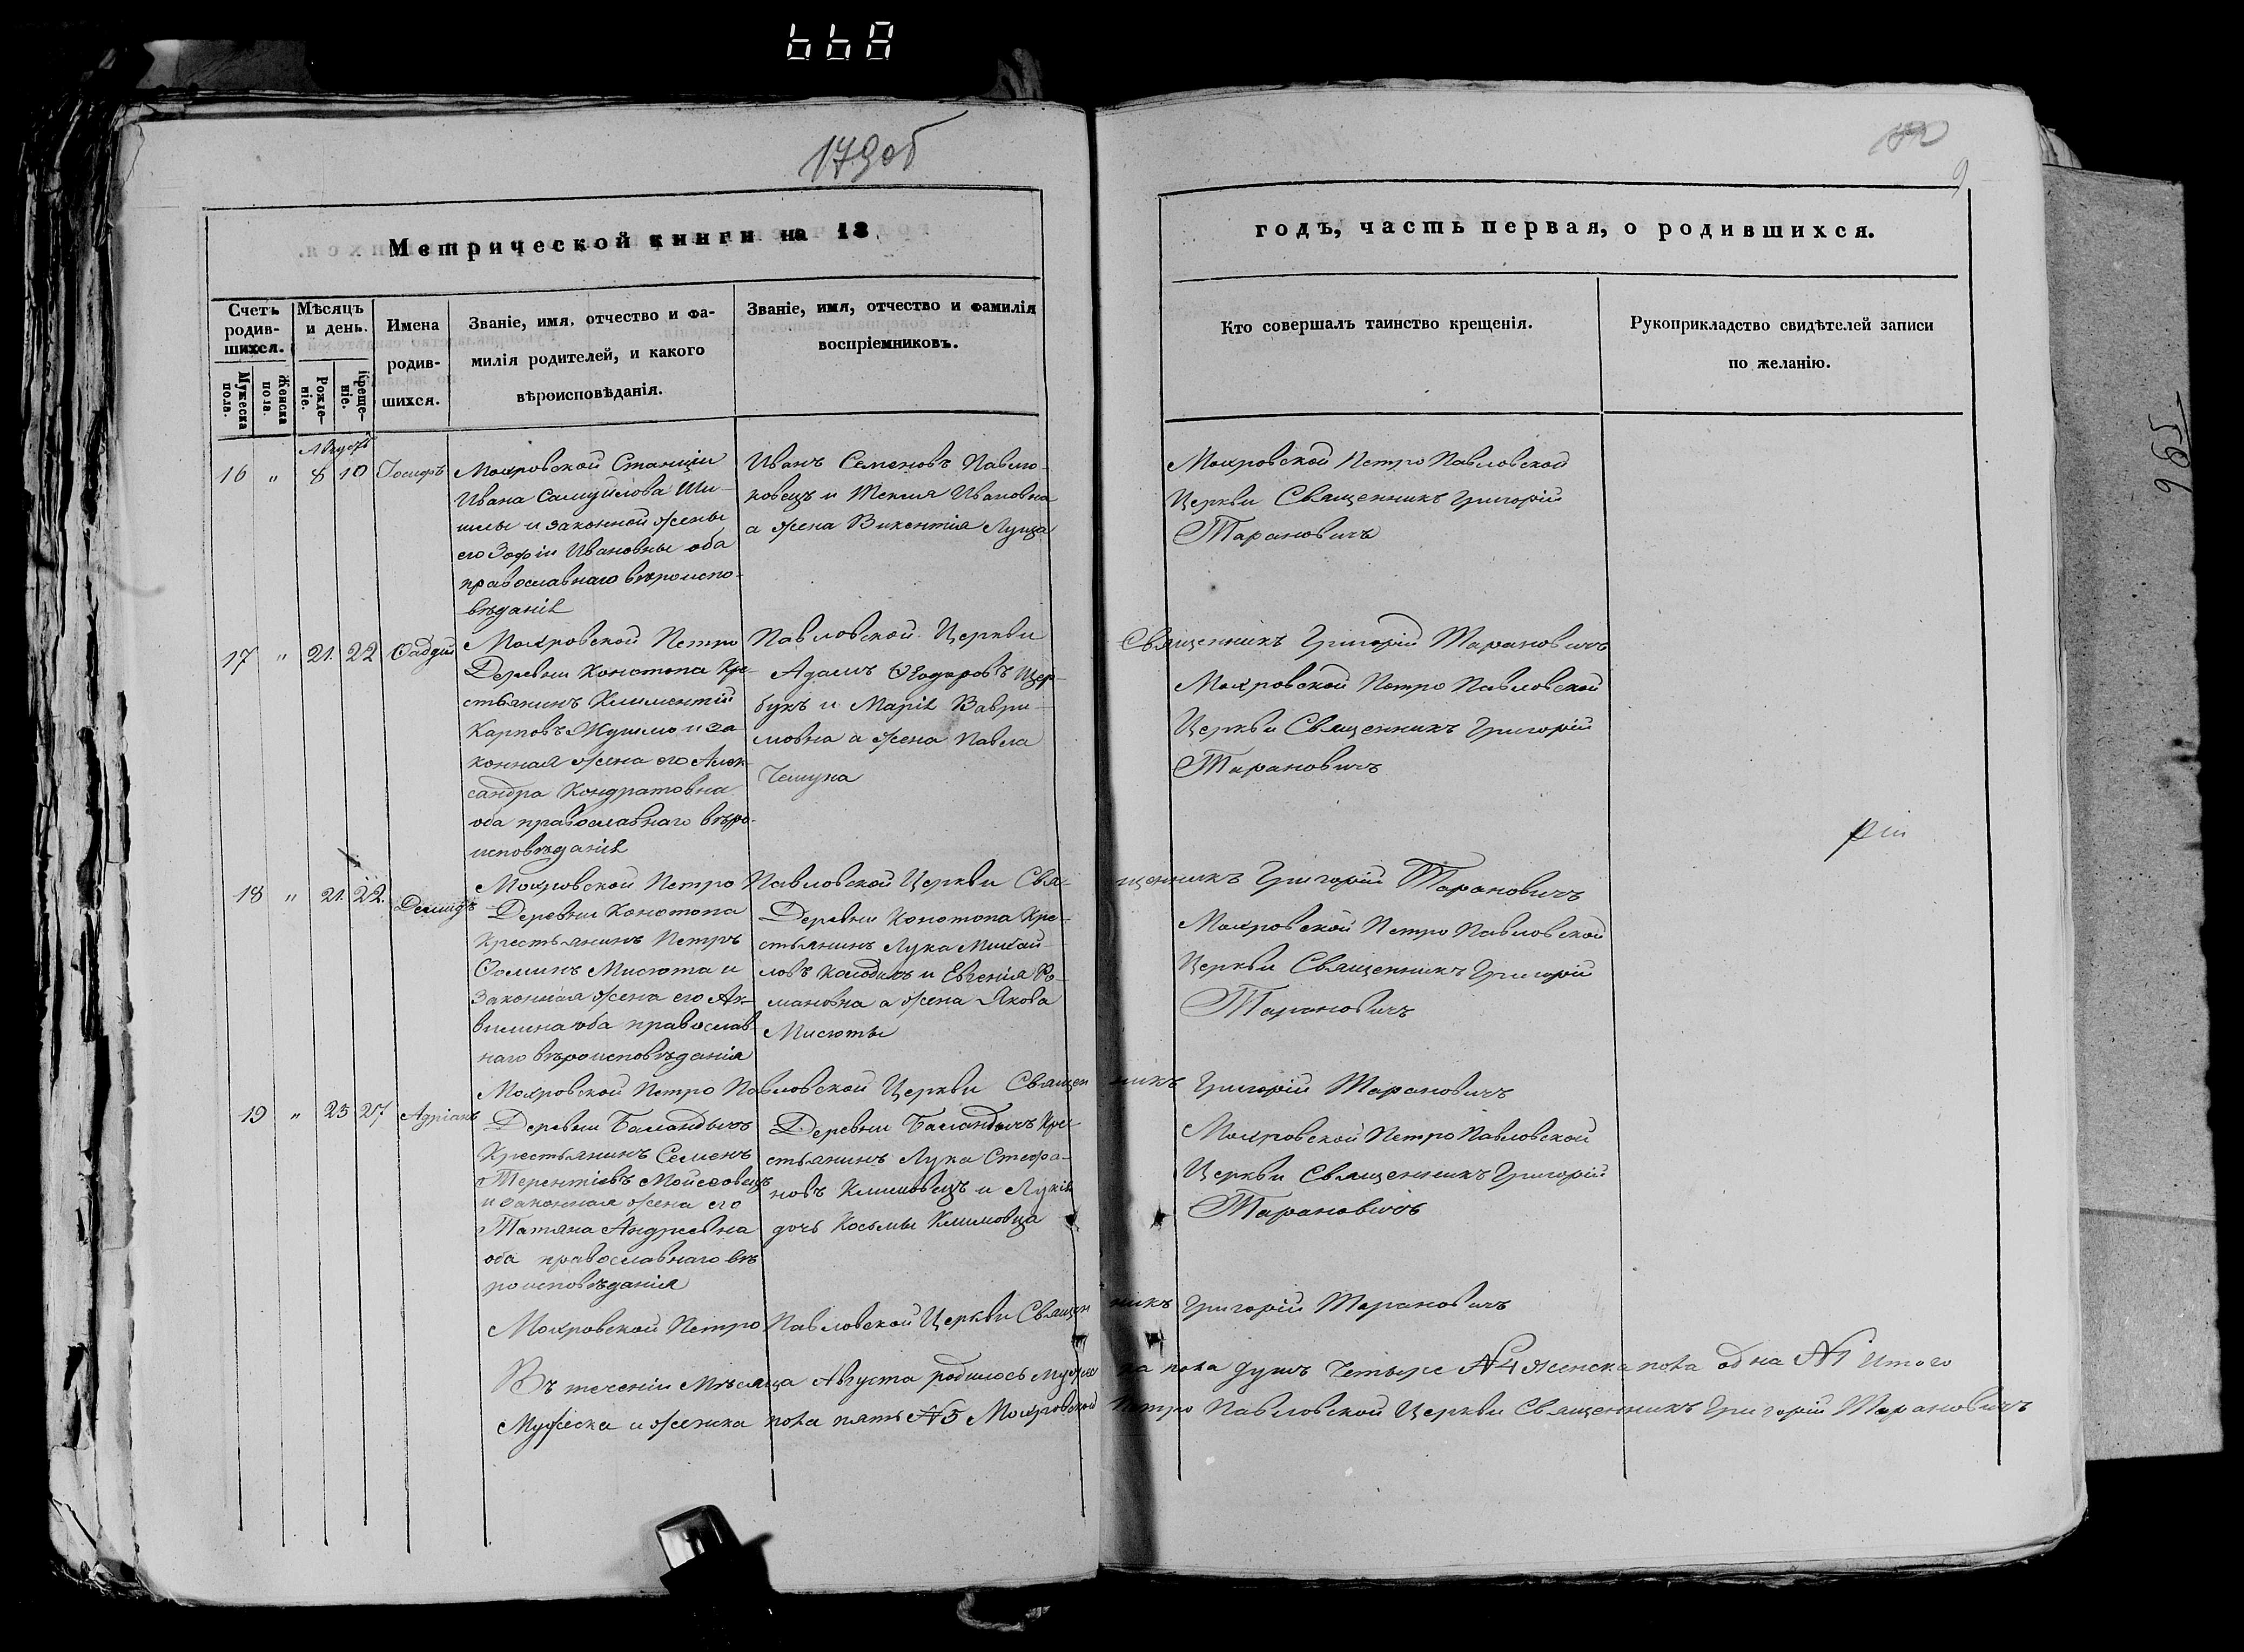 179об
Метрической книги на 18
годъ, часть первая, о родившихся.
Счетъ родив-шихся.
Мужеска пола.
Женска пола.
Мѣсяцъ и день.
Рожде-ніе.
Креще-ніе.
Имена родив-шихся.
Званіе, имя, отчество и фа-
милія родителей, и какого
вѣроисповѣданія.
Званіе, имя, отчество и фамилія
воспріемниковъ.
Кто совершалъ таинство крещенія.
Рукоприкладство свидѣтелей записи
по желанію.
Августъ
16 " 8 10 Іосифъ
Мохровской Станціи
Ивана Самуйлова Ши-
шлы и законной жены
его Зофіи Ивановны оба
православнаго вѣроиспо-
вѣданія
Иванъ Семеновъ Павлю-
ковецъ и Текля Ивановна
а жена Викентія Луща
Мохровской Петро Павловской
Церкви Священникъ Григорій
Тарановичъ
Мохровской Петро Павловской Церкви Священникъ Григорій Тарановичъ
17 " 21. 22 Фаддей
Деревни Конотопа Кре-
стьянинъ Климентій
Карповъ и за-
конная жена его Алек-
сандра Кондратовна
оба православнаго вѣро-
исповѣданія
Адамъ Ѳеодоровъ Щер-
букъ и Марія Ваври-
мовна а жена Павла
Мохровской Петро Павловской
Церкви Священникъ Григорій
Тарановичъ
Мохровской Петро Павловской Церкви Священникъ Григорій Тарановичъ
18 " 21. 22. Демидъ
Деревни Конотопа
Крестьянинъ Петръ
Фоминъ Мисюта и
Законная жена его Ак-
вилина оба православ-
наго вѣроисповѣданія
Деревни Конотопа Кре-
стьянинъ Лука Михай-
ловъ и Евгенія Ро-
мановна а жена Якова
Мисюты
Мохровской Петро Павловской
Церкви Священникъ Григорій
Тарановичъ
Мохровской Петро Павловской Церкви Священникъ Григорій Тарановичъ
19 " 25 27 Адріанъ
Деревни Баландычъ
Крестьянинъ Семенъ
Терентіевъ Мойсеовецъ
и законная жена его
Татяна Андреевна
оба православнаго вѣ-
роисповѣданія
Деревни Баландычъ Кре-
стьянинъ Лука Стефа-
новъ Климовецъ и Лукія
дочь Косьмы Климовца
Мохровской Петро Павловской
Церкви Священникъ Григорій
Тарановичъ
Мохровской Петро Павловской Церкви Священникъ Григорій Тарановичъ
Въ теченіи Мѣсяца Августа родилось мужеска пола душъ Четыре №4 женска пола одна №1 Итого
Мужеска и женска пола пять №5 Мохровской Петро Павловской Церкви Священникъ Григорій Тарановичъ
9